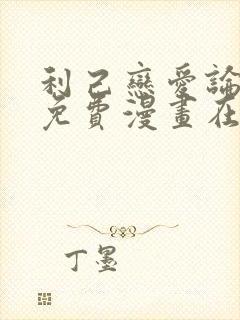 利己戀愛論
免費漫畫在
丁墨